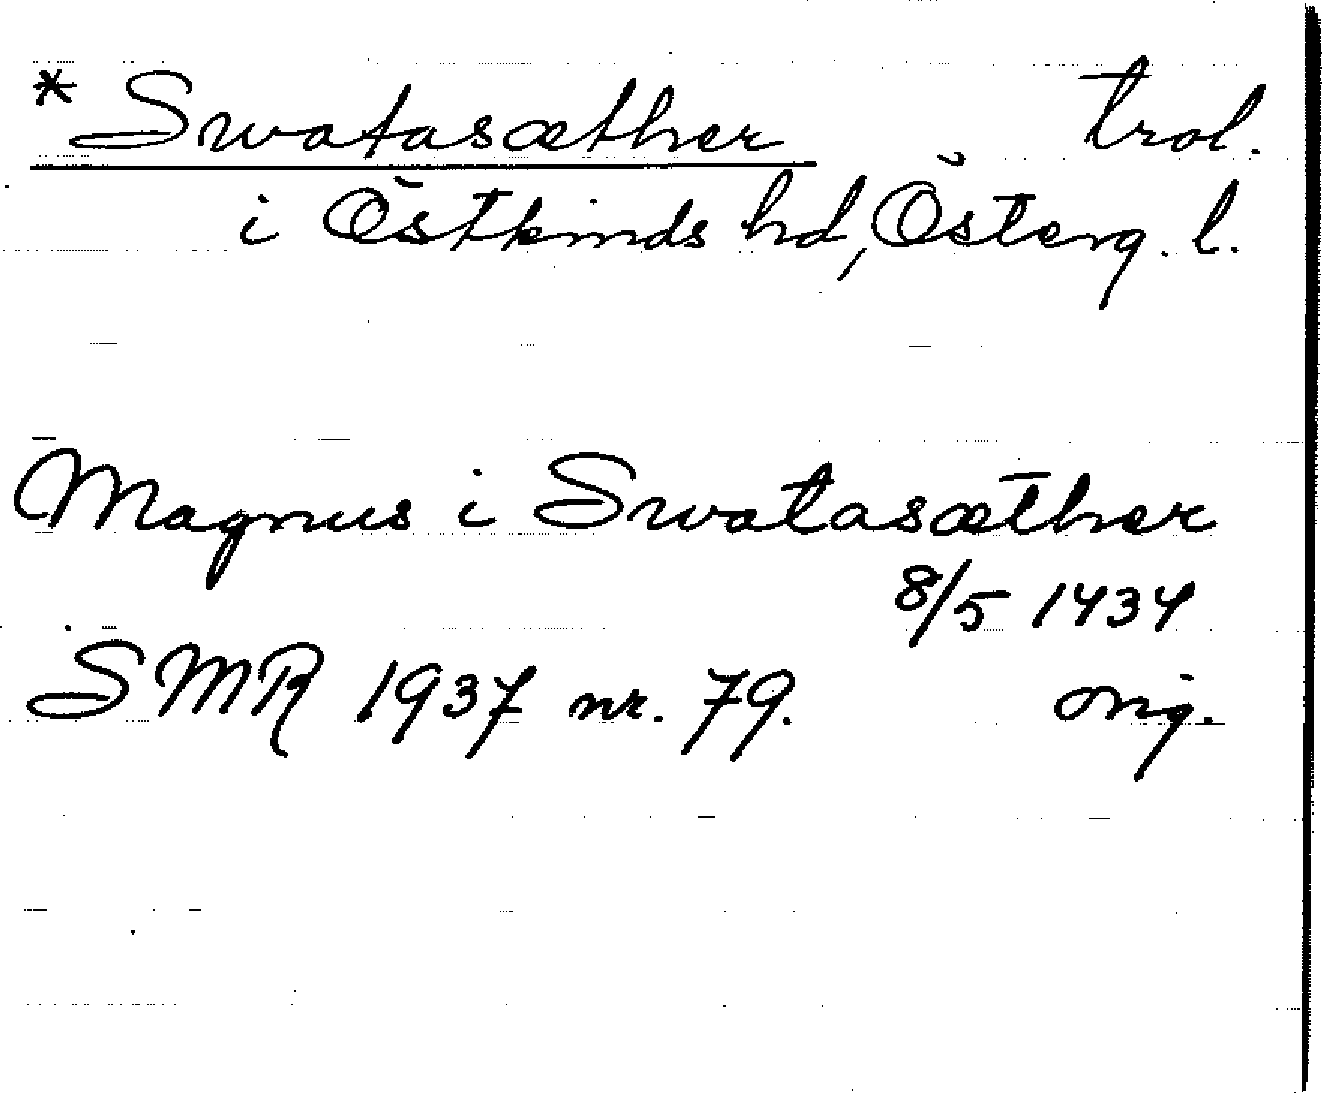 * Swatasæther trol.
i Östkinds hd, Österg. l.
Magnus i Swatasæther
8/5 1434
SMR 1937 nr. 79. orig.